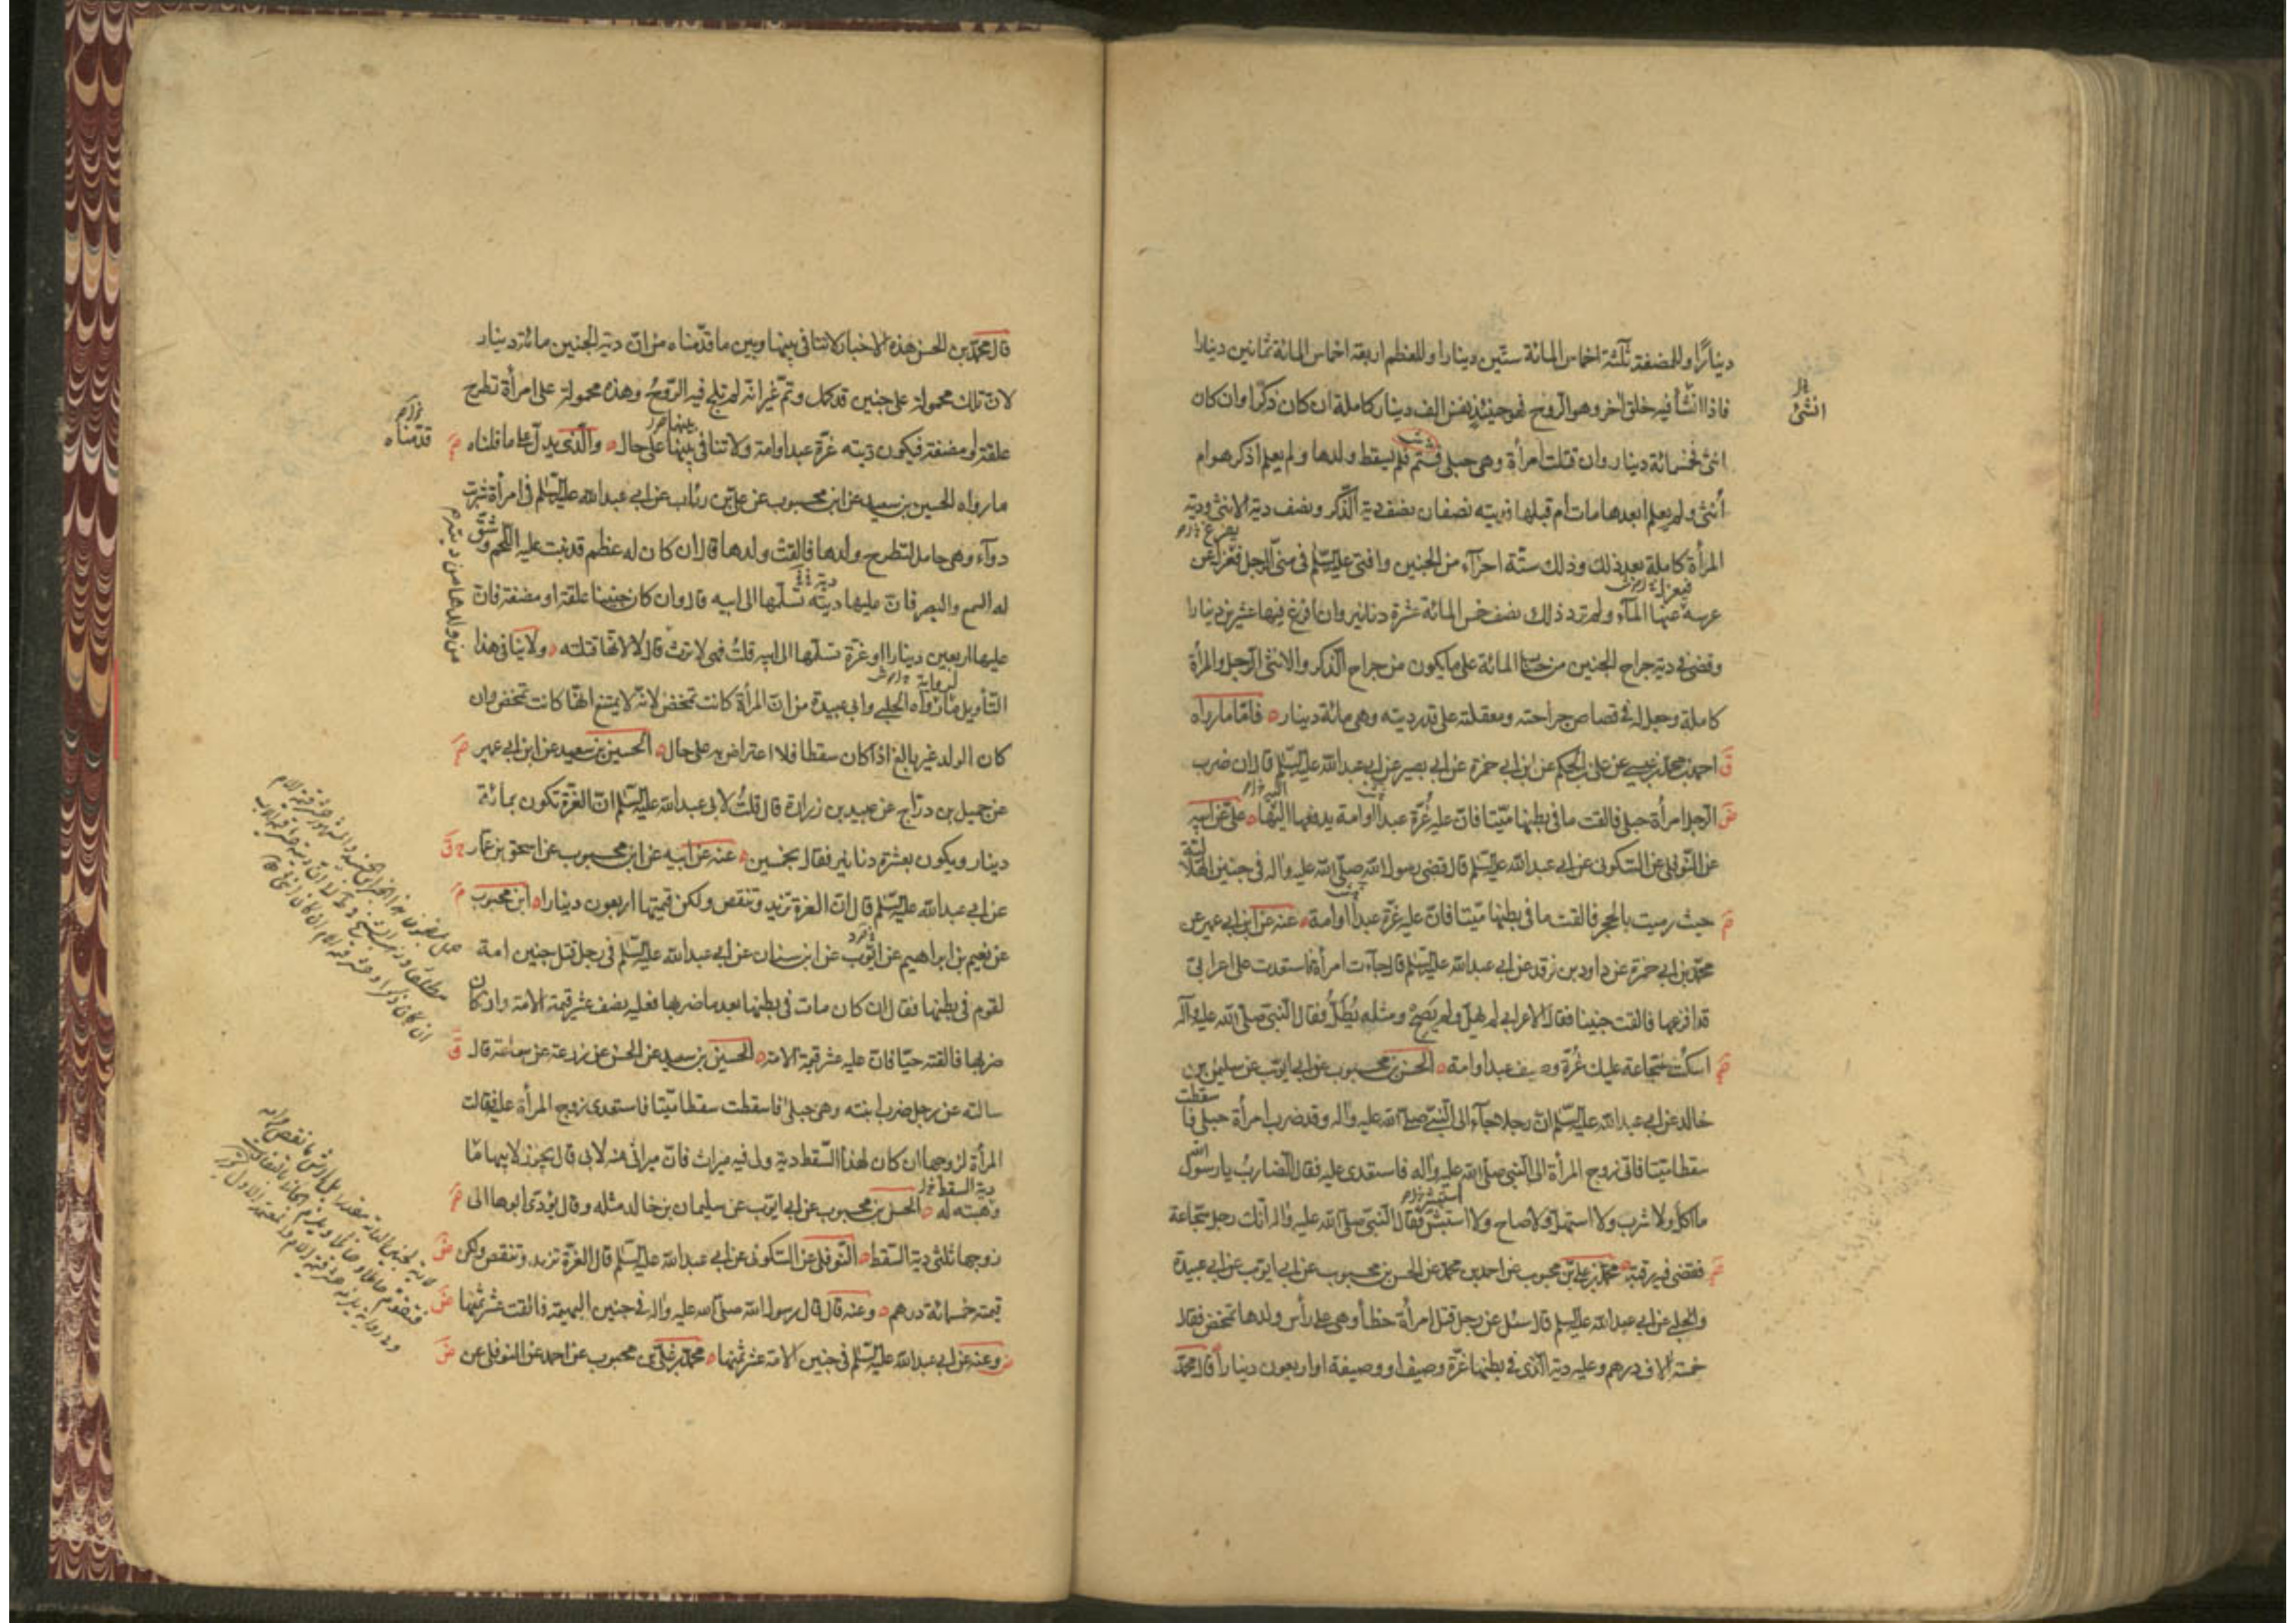 دينارًا وللمضغة ثلثة اخماس المائة ستين دينارا وللعظم اربعة اخماس المائة ثمانين دينارا
فاذا انشأ فيه خلق اخر وهو الروح فهو حينئذ نفس الف دينار كاملة ان كان ذكرا وان كان
انثى فخمسمائة دينار وان قتلت امرأة وهى حبلى فتم فلم يسقط ولدها ولم يعلم اذكر هو ام
أنثى ولم يعلم ابعدها مات أم قبلها فديته نصفان نصف دية الذكر ونصف دية الانثى ودية
المرأة كاملة بعد ذلك وذلك ستة اجزآء من الجنين وافتى عليه السلم فى منى الرجل يفزع عن
عرسه فيعزل عنها المآء ولم ترد ذلك نصف خمس المائة عشرة دنانير وان افرغ فيها عشرين دينارا
وقضى فى دية جراح الجنين من حساب المائة على ما يكون من جراح الذكر والانثى الرجل والمرأة
كاملة وجعل له فى قصاص جراحته ومعقلته على قدر ديته وهى مائة دينار فامّا ما رواه
احمد بن محمد بن عيسى عن على بن الحكم عن ابن ابى حمزة عن ابى بصير عن ابى عبد الله عليه السلم قال ان ضرب
الرجل امرأة حبلى فالقت ما فى بطنها ميّتا فانّ عليه غُرّة عبدا او امة يدفعها اليها على عن ابيه
عن النوفلى عن السكونى عن ابى عبد الله عليه السلم قال قضى رسول الله صلى الله عليه واله فى جنين الهلالية
حيث رميت بالحجر فالقت ما فى بطنها ميّتا فانّ عليه غرّة عبدا او امة عنه عن ابن ابى عمير عن
محمد بن ابى حمزة عن داود بن فرقد عن ابى عبد الله عليه السلم قال جآءت امرأة فاستعدت على اعرابىّ
قد افزعها فالقت جنينا فقال الاعرابى لم يهلّ ولم يَصِحْ ومثله يُطَلُّ فقال النبى صلى الله عليه وآله
اسكُت سجّاعة عليك غُرّة وصيف عبد او امة الحسن بن محبوب عن ابى ايّوب عن سليمن بن
خالد عن ابى عبد الله عليه السلم انّ رجلا جآء الى النبىّ صلى الله عليه واله وقد ضرب امرأة حبلى فاسقطت
سقطا ميّتا فاتى زوج المرأة الى النبى صلى الله عليه واله فاستعدى عليه فقال الضاربُ يا رسول الله
ما اكل ولا شرب ولا استهلّ ولا صاح ولا استبشّ فقال النّبى صلى الله عليه واله انّك رجل سجّاعة
فقضى فيه رقبة محمد بن على بن محبوب عن احمد بن محمد عن الحسن بن محبوب عن ابى ايوب عن ابى عبيدة
والحلبى عن ابى عبد الله عليه السلم قال سئل عن رجل قتل امرأة خطأ وهى على رأس ولدها تمخض فقال
خمسة الاف درهم وعليه دية الذى فى بطنها غرّة وصيف او وصيفة او اربعون دينارا قال محمد
انثى
قال محمد بن الحسن هذه الاخبار لا تنافى بينها وبين ما قدّمناه من انّ دية الجنين مائة دينار
لانّ تلك محمولة على جنين قد كمل وتمّ غير انّه لم تلج فيه الرّوحُ وهذه محمولة على امرأة تطرح
علقة او مضغة فيكون ديته غرّة عبد او امة ولا تنافى بينها على حال والّذى يدلّ على ما قلناه
قدّمناه
ما رواه الحسين بن سعيد عن ابن محبوب عن على بن رئاب عن ابى عبد الله عليه السلم فى امرأة شربت
دوآء وهى حامل لتطرح ولدها فالقت ولدها قال ان كان له عظم قد نبت عليه اللحم وشقّ
له السمع والبصر فانّ عليها ديته تسلّمها الى ابيه قال وان كان جنينا علقة او مضغة فانّ
عليها اربعين دينارا او غرّة تسلّمها الى ابيه قلتُ فهى لا ترث قال لا لانّها قتلته ولا ينافى هذا
من ولدها من ديته
التّأويل ما رواه الحلبى وابى عبيدة من انّ المرأة كانت تمخض لانّه لا يمتنع انّها كانت تمخض وان
كان الولد غير بالغ اذا كان سقطا فلا اعتراض به على حال الحسين بن سعيد عن ابن ابى عمير
عن جميل بن درّاج عن عبيد بن زرارة قال قلتُ لابى عبد الله عليه السلم انّ الغرّة تكون بمائة
دينار ويكون بعشرة دنانير فقال بخمسين عنه عن ابيه عن ابن محبوب عن اسحق بن عمّار
عن ابى عبد الله عليه السلم قال انّ الغرة تزيد وتنقص ولكن قيمتها اربعون دينارا ابن محبوب
عن نعيم بن ابراهيم عن ايّوب عن ابن سنان عن ابى عبد الله عليه السلم فى رجل قتل جنين امة
لقوم فى بطنها فقال ان كان مات فى بطنها بعد ما ضربها فعليه نصف عشر قيمة الامة وان كان
ضربها فالقته حيّا فانّ عليه عشر قيمة الامة الحسين بن سعيد عن الحسن عن زرعة عن سماعة قال
سالته عن رجل ضرب ابنته وهى حبلى فاسقطت سقطا ميّتا فاستعدى زوج المرأة عليه فقالت
المرأة لزوجها ان كان لهذا السّقط دية ولى فيه ميراث فانّ ميراثى منه لابى قال يجوز لابيها ما
وهبته له الحسن بن محبوب عن ابى ايّوب عن سليمان بن خالد مثله وقال يؤدى ابوها الى
زوجها ثلثى دية السّقط النّوفلى عن السكونى عن ابى عبد الله عليه السلم قال الغرّة تزيد وتنقص ولكن
قيمته خمسمائة درهم وعنه قال قال رسول الله صلى الله عليه واله فى جنين البهيمة فالقت عشر ثمنها
وعنه عن ابى عبد الله عليه السلم فى جنين الامة عشر ثمنها محمد بن على بن محبوب عن احمد عن النوفلى عن